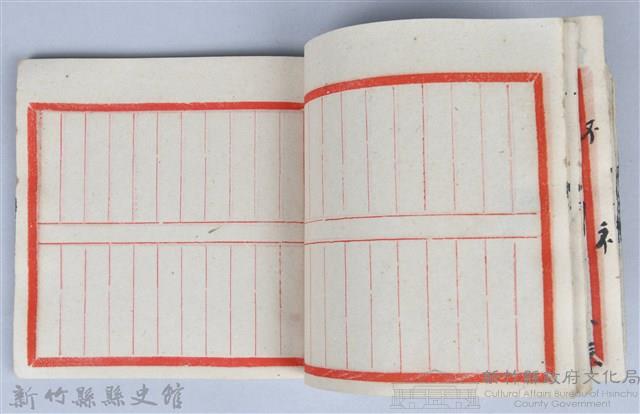 不
ネ
新竹縣縣史館
新竹縣政府文化局
Cultural Affairs Bureau of Hsinchu
County Government